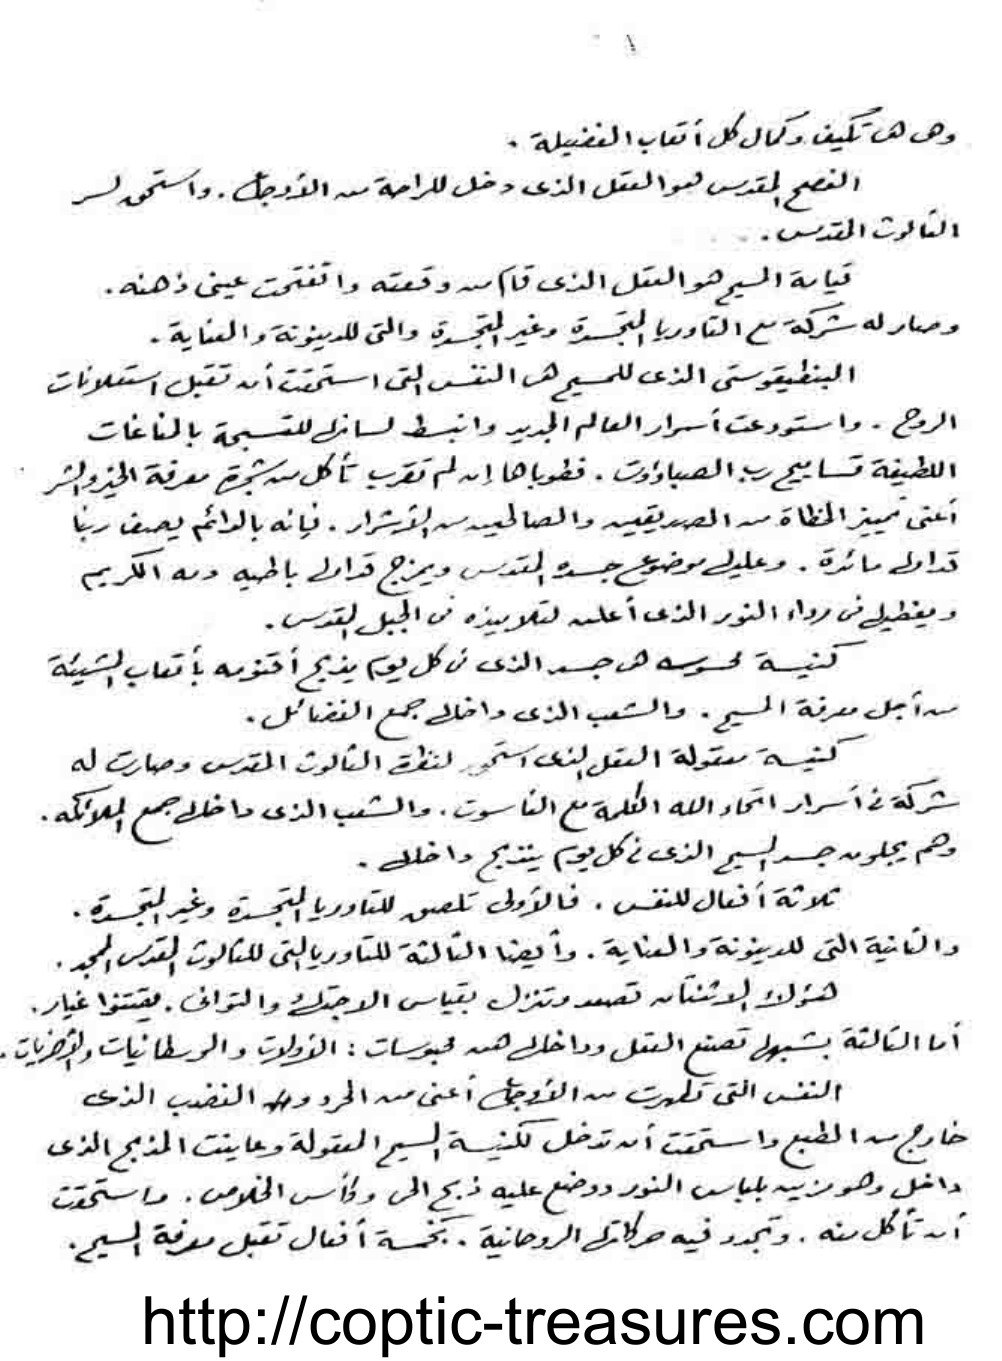 ١
وهى هى تكيف وكمال كل أتعاب الفضيلة .
الفصح المقدس هو العقل الذى دخل للراحة من الأوجاع . واستحق لسر
الثالوث المقدس .
قيامة المسيح هو العقل الذى قام من وقعته واتفتحت عينى ذهنه .
وصار له شركة مع التاوريا المتجسدة وغير المتجسدة والتى للدينونة والعناية .
البنطيقوستى الذى للمسيح هى النفس التى استحقت أن تقبل استعلانات
الروح . واستودعت أسرار العالم الجديد وانبسط لسانها للتسبحة بالناغات
اللطيفة تسابيح رب الصباؤوت . فطوباها إن لم تقرب تأكل من شجرة معرفة الخير والشر
أعنى تمييز الخطاة من الصديقين والصالحين من الأشرار . فإنه بالدائم يصف ربنا
قدامها مائدة . وعليها موضوع جسده المقدس ويمزج قدامها بأطيه دمه الكريم
ويغطيها فى رداء النور الذى أعلن لتلاميذه فى الجبل المقدس .
كنيسة محسوسه هى جسد الذى فى كل يوم يذبح أقنومه بأتعاب النسك
من أجل معرفة المسيح . والشعب الذى داخلها جمع الفضائل .
كنيسة معقولة العقل الذى استحق لنظرة الثالوث المقدس وصارت له
شركة فى أسرار اتحاد الله الكلمة مع الناسوت . والشعب الذى داخلها جمع الملائكه .
وهم يجلون جسد المسيح الذى فى كل يوم يذبح داخلها .
ثلاثة أفعال للنفس . فالأولى تلصق للتاوريا المتجسدة وغير المتجسدة .
والثانية التى للدينونة والعناية . وأيضا الثالثة للتاوريا التى للثالوث المقدس المجد .
هؤلاء الاثنتان تصعد وتنزل بقياس الاجتهاد والتوانى . يقتنوا غيار .
أما الثالثة بشبهها تصنع العقل وداخلها هن محبوسات : الأولات والوسطانيات والأخريات .
النفس التى تطهرت من الأوجاع أعنى من الحرد ومن الغضب الذى
خارج من الطبع واستحقت أن تدخل لكنيسة المسيح المعقولة وعاينت المذبح الذى
داخل وهو مزين بلباس النور ووضع عليه ذبح الحى وكأس الخلاص . واستحقت
أن تأكل منه . وتجدد فيه حركاتها الروحانية . بخمسة أفعال تقبل معرفة المسيح .
http://coptic-treasures.com